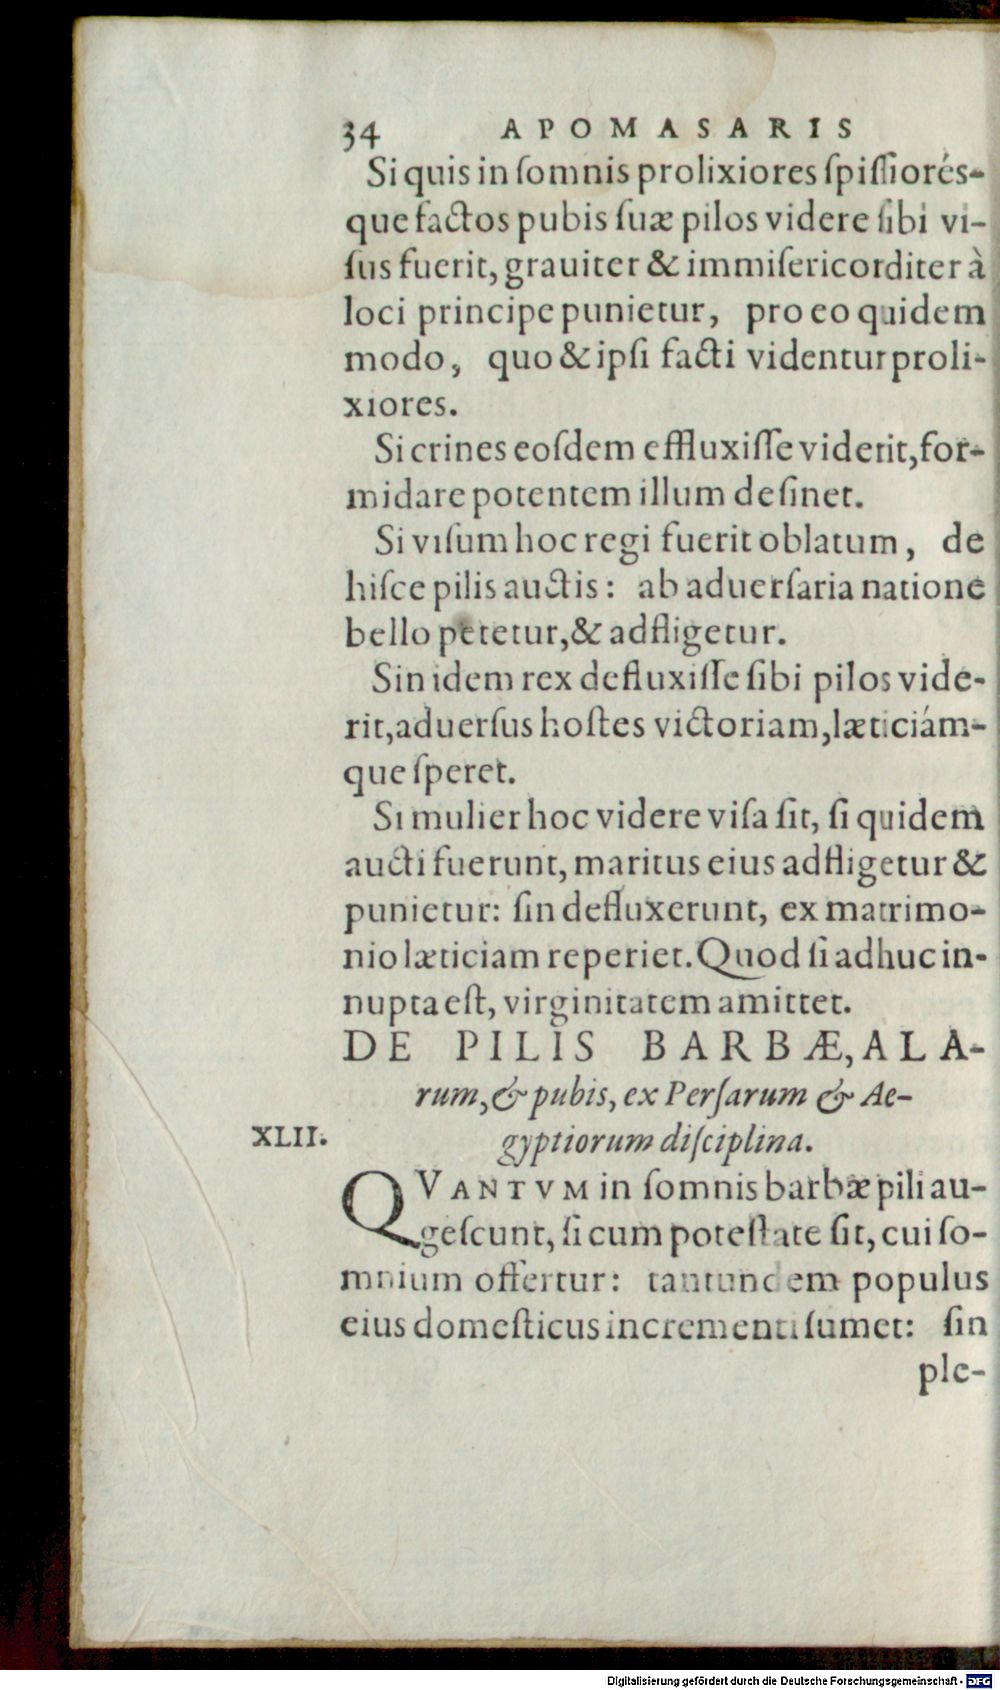 34 APOMASARIS
Si quis in ſomnis prolixiores ſpiſſiorés-
que factos pubis ſuæ pilos videre ſibi vi-
ſus fuerit, grauiter & immiſericorditer à
loci principe punietur, pro eo quidem
modo, quo & ipſi facti videntur proli-
xiores.
Si crines eoſdem effluxiſſe viderit, for-
midare potentem illum deſinet.
Si viſum hoc regi fuerit oblatum, de
hiſce pilis auctis: ab aduerſaria natione
bello petetur, & adfligetur.
Sin idem rex defluxiſſe ſibi pilos vide-
rit, aduerſus hoſtes victoriam, læticiám-
que ſperet.
Si mulier hoc videre viſa ſit, ſi quidem
aucti fuerunt, maritus eius adfligetur &
punietur: ſin defluxerunt, ex matrimo-
nio læticiam reperiet. Quod ſi adhuc in-
nupta eſt, virginitatem amittet.
DE PILIS BARBÆ, ALA-
rum, & pubis, ex Perſarum & Ae-
XLII. gyptiorum diſciplina.
QVANTVM in ſomnis barbæ pili au-
geſcunt, ſi cum poteſtate ſit, cui ſo-
mnium offertur: tantundem populus
eius domeſticus incrementi ſumet: ſin
ple-
Digitalisierung gefördert durch die Deutsche Forschungsgemeinschaft - DFG